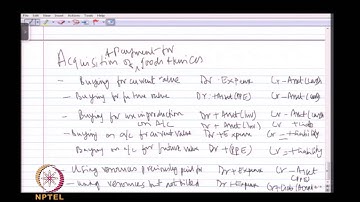 + Payment for
Acquisition of goods + services
- Buying for current value Dr + Expense Cr - Asset (cash)
- Buying for future value Dr + Asset (PPE) Cr - Asset (cash)
- Buying for use in production Dr + Asset (Inv) Cr - Asset (cash)
on A/c Dr + Asset (Inv) Cr + Liab
- Buying on a/c for current value Dr + Expense Cr + Liability
Buying on a/c for future value Dr + PPE Cr + Liability
- Using resources previously paid for Dr + Expense Cr - Asset
(PPE)
- Using resources but not billed Dr + Expense Cr + Liab
NPTEL